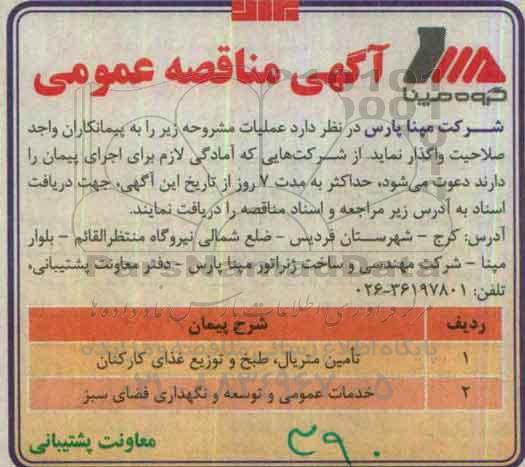 گروه مپنا
آگهی مناقصه عمومی
شرکت مپنا پارس در نظر دارد عملیات مشروحه زیر را به پیمانکاران واجد
صلاحیت واگذار نماید. از شرکت‌هایی که آمادگی لازم برای اجرای پیمان را
دارند دعوت می‌شود، حداکثر به مدت ۷ روز از تاریخ این آگهی، جهت دریافت
اسناد به آدرس زیر مراجعه و اسناد مناقصه را دریافت نمایند.
آدرس: کرج - شهرستان فردیس - ضلع شمالی نیروگاه منتظرالقائم - بلوار
مپنا - شرکت مهندسی و ساخت ژنراتور مپنا پارس - دفتر معاونت پشتیبانی،
تلفن: ۳۶۱۹۷۸۰۱-۰۲۶
ردیف شرح پیمان
۱ تأمین متریال، طبخ و توزیع غذای کارکنان
۲ خدمات عمومی و توسعه و نگهداری فضای سبز
معاونت پشتیبانی
۳۹۰
ParsNamadData